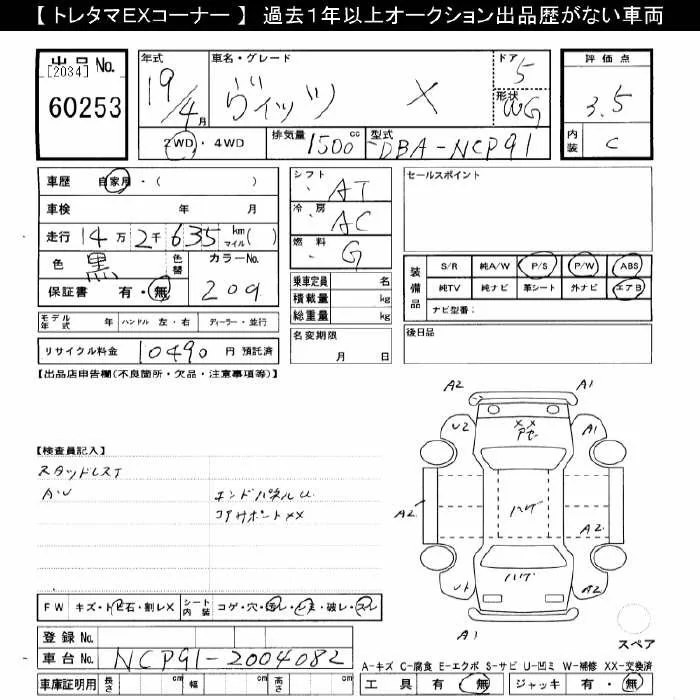 【 トレタマEXコーナー 】 過去1年以上オークション出品歴がない車両
出品 No.
[2034]
60253
年式
19/4月
車名・グレード
ヴィッツ X
ドア
5
形状
WG
評価点
3.5
内装
C
2WD・4WD
排気量 1500 cc
型式 DBA-NCP91
車歴 自家用・( )
車検 年 月
走行 14万2千635 km マイル( )
色 黒 色替 カラーNo.
209
保証書 有・無
モデル年式 年 ハンドル 左・右 ディーラー・並行
リサイクル料金 10490 円 預託済
シフト AT
冷房 AC
燃料 G
乗車定員 名
積載量 kg
総重量 kg
名変期限
月 日
セールスポイント
装備品
S/R 純A/W P/S P/W ABS
純TV 純ナビ 革シート 外ナビ エアB
ナビ型番:
後日品
【出品店申告欄(不良箇所・欠品・注意事項等)】
【検査員記入】
スタッドレスT
AU
エンドパネルU
コアサポートXX
A2 A1
U2 XX A1
A2 ハゲ A2
ハゲ A2
A1
スペア
FW キズ・トビ石・割レX シート内装 コゲ・穴・汚レ・シミ・破レ・スレ
登録 No.
車台 No. NCP91-2004082
車庫証明用 長さ cm 幅 cm 高さ cm
A-キズ C-腐食 E-エクボ S-サビ U-凹ミ W-補修 XX-交換済
工具 有・無 ジャッキ 有・無